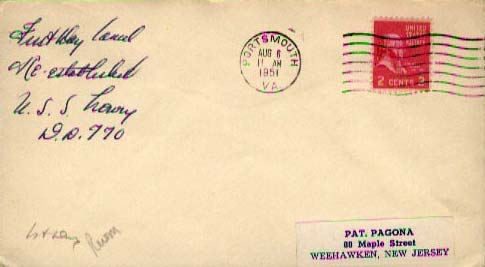 First Day Cancel
Re-established
U.S.S. Lowry
D.D. 770
PORTSMOUTH
AUG 6
11 AM
1951
VA.
UNITED
STATES
POSTAGE
2 CENTS 2
1st day
PAT. PAGONA
88 Maple Street
WEEHAWKEN, NEW JERSEY